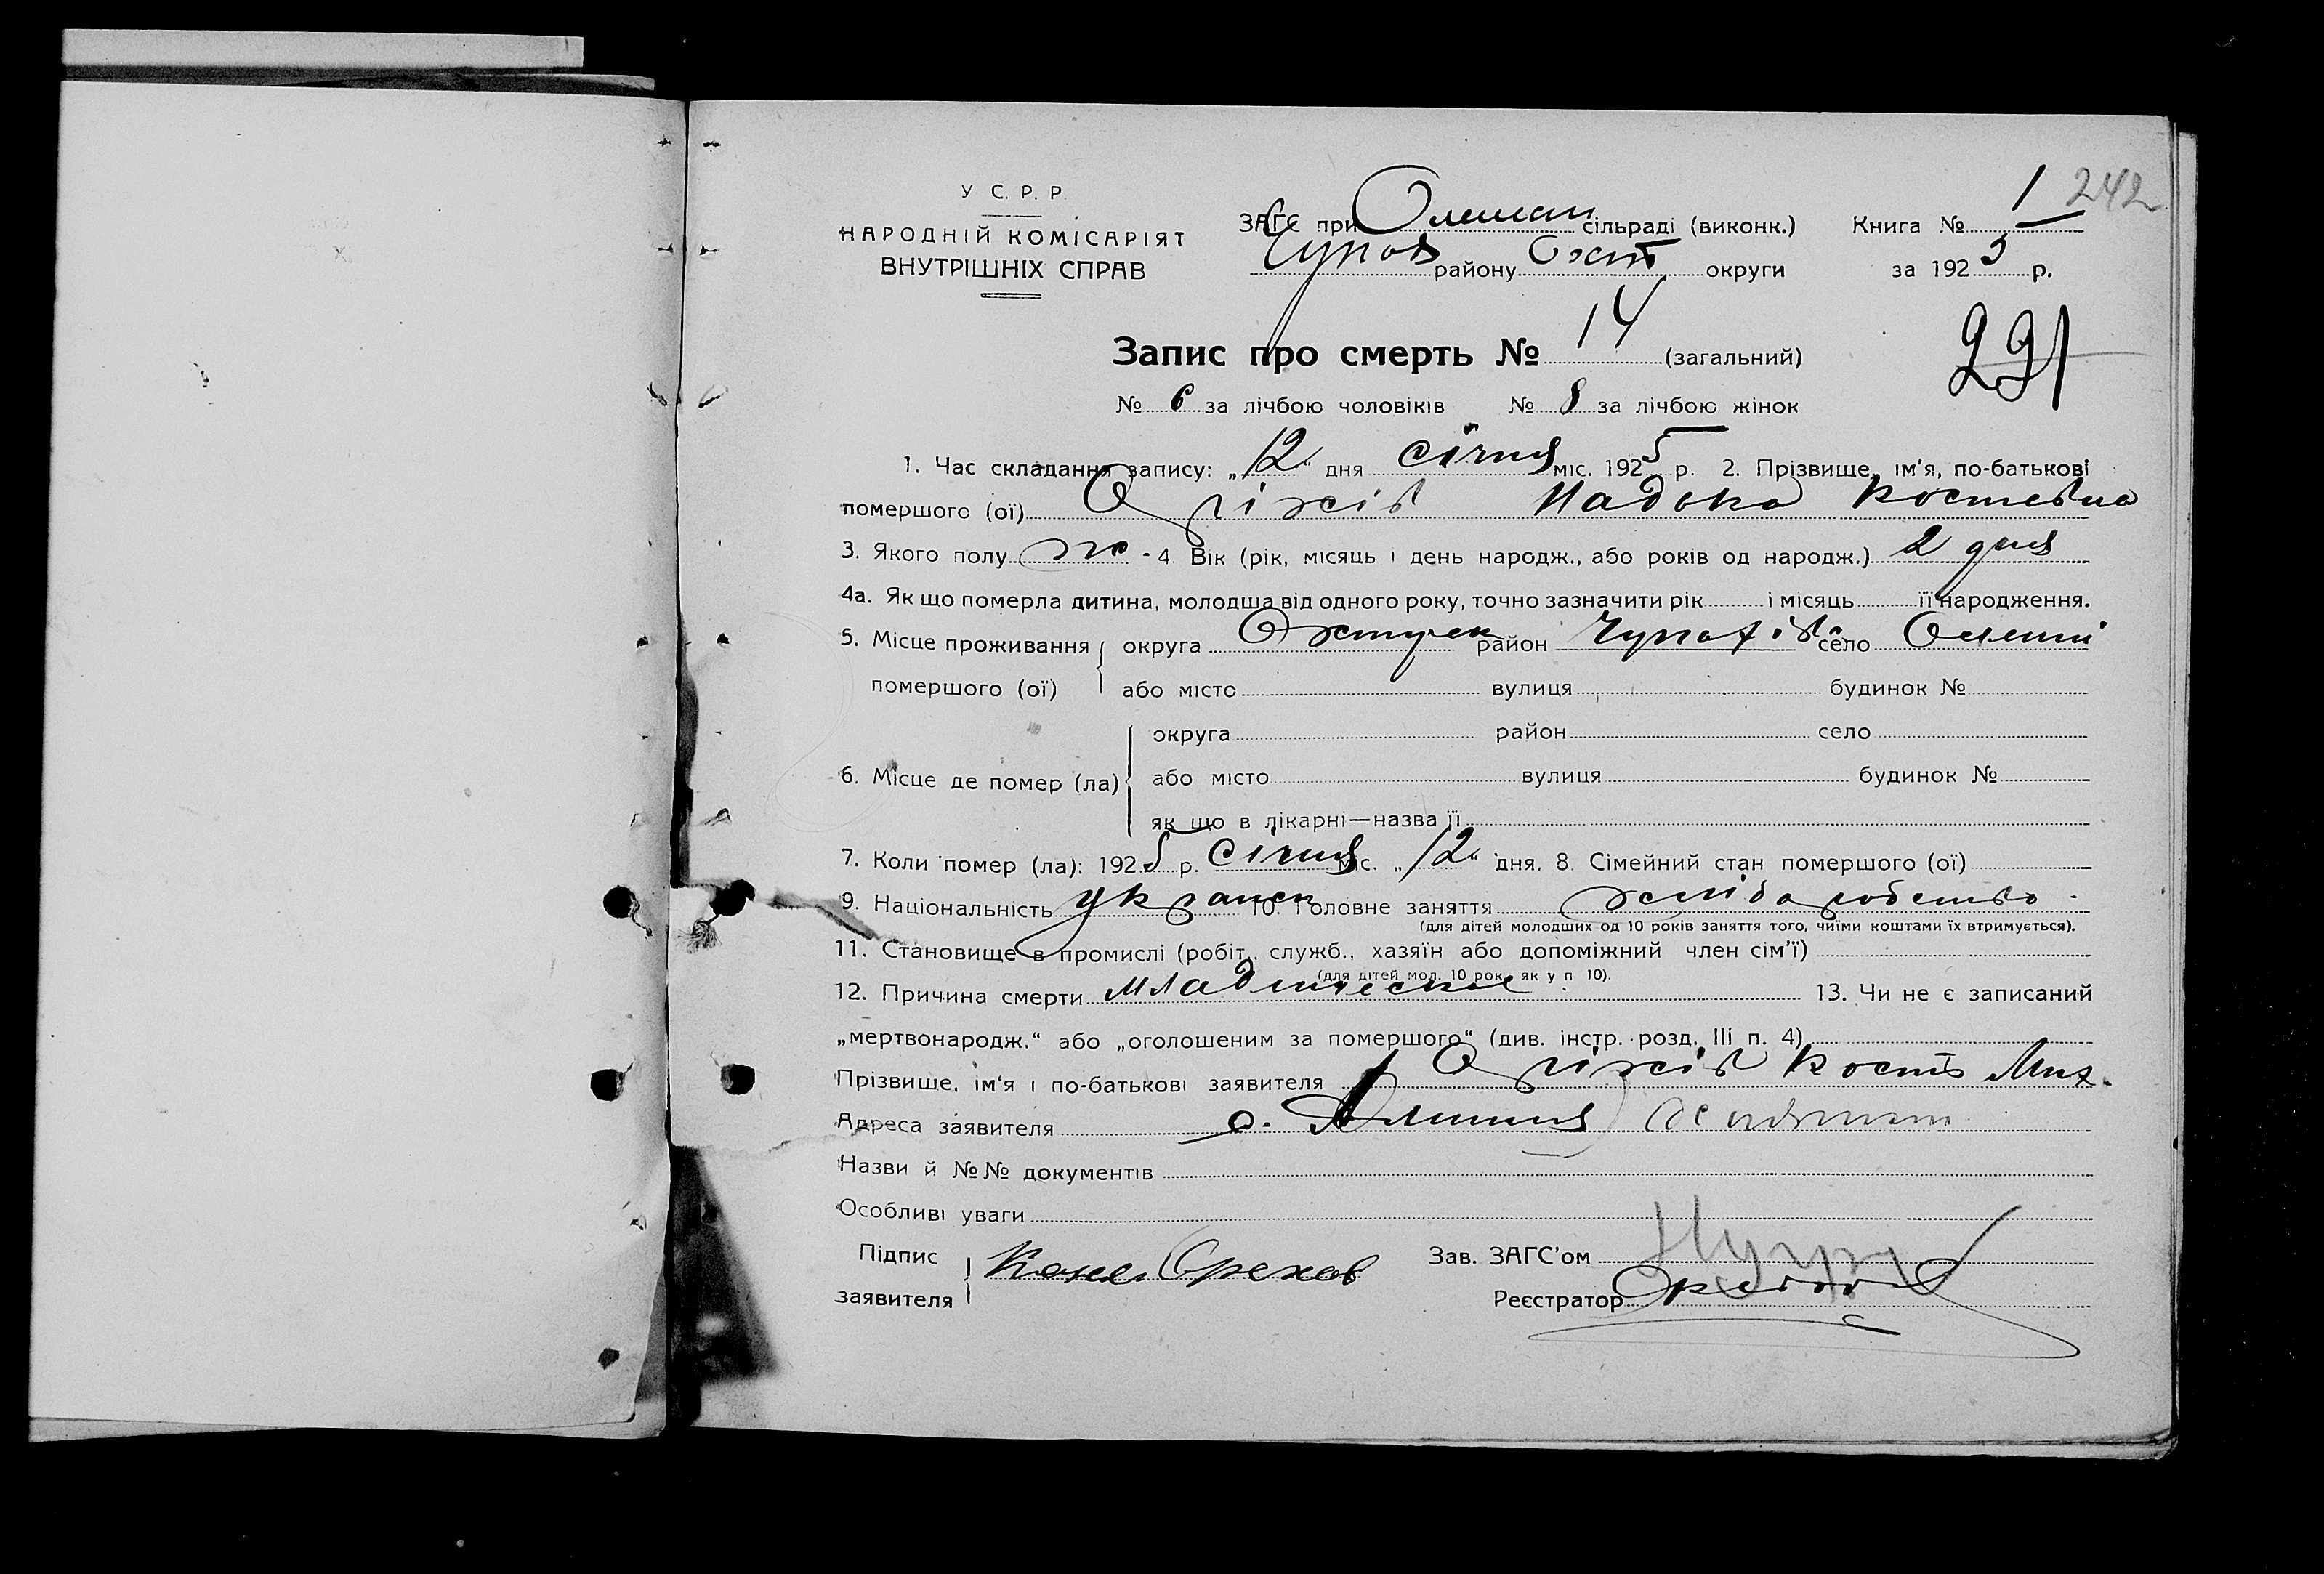 У С. Р. Р.
НАРОДНІЙ КОМІСАРІЯТ
ВНУТРІШНІХ СПРАВ
ЗАГС при Олешан сільраді (виконк.) Книга № 1 242
Чупах району Охт округи за 1925 р.
Запис про смерть № 14 (загальний)
291
№ 6 за лічбою чоловіків № 8 за лічбою жінок
1. Час складання запису: „12" дня січня міс. 1925 р. 2. Прізвище, ім'я, по-батькові
помершого (ої) Оріхів Мадока Костевна
3. Якого полу ж - 4. Вік (рік, місяць і день народж., або років од народж.) 2 дня
4а. Як що померла дитина, молодша від одного року, точно зазначити рік і місяць її народження.
5. Місце проживання округа Охтирск район Чупахів село Олешні
помершого (ої) або місто вулиця будинок №
округа район село
6. Місце де помер (ла) або місто вулиця будинок №
як що в лікарні—назва її
7. Коли помер (ла): 1925 р. січня міс. „12" дня. 8. Сімейний стан помершого (ої)
9. Національність украинск 10. Головне заняття хлібаробство
(для дітей молодших од 10 років заняття того, чиїми коштами їх втримується).
11. Становище в промислі (робіт., служб., хазяїн або допоміжний член сім'ї)
(для дітей мол. 10 рок. як у п 10).
12. Причина смерти младенческое 13. Чи не є записаний
„мертвонародж." або „оголошеним за помершого" (див. інстр. розд. III п. 4)
Прізвище, ім'я і по-батькові заявителя Оріхів Кость Мих.
Адреса заявителя с.
Назви й №№ документів
Особливі уваги
Підпис Зав. ЗАГС'ом
заявителя Орехов Реєстратор